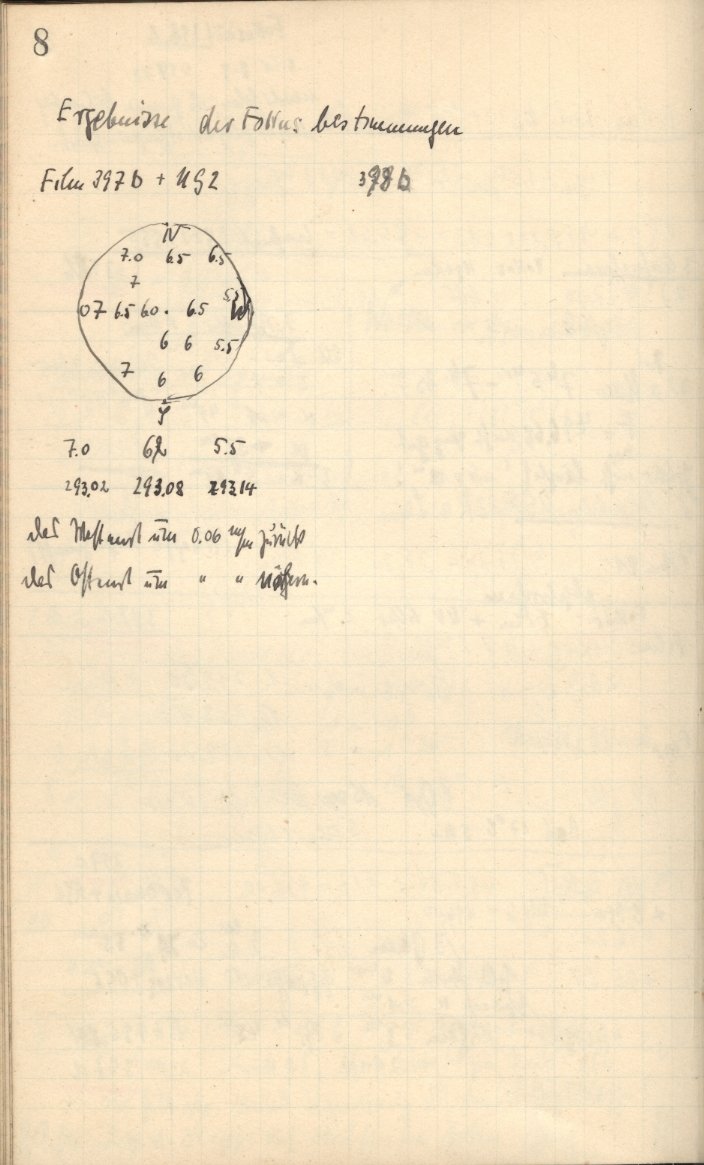 8
Ergebnisse der Fokus bestimmungen
Film 397b + UG2 398b
N
7.0 6.5 6.5
7
5.5
07 6.5 6.0 . 6.5 W
6 6 5.5
7 6 6
S
7.0 62 5.5
293.02 293.08 293.14
das Westende um 0.06 m/m zurück
das Ostende um " "